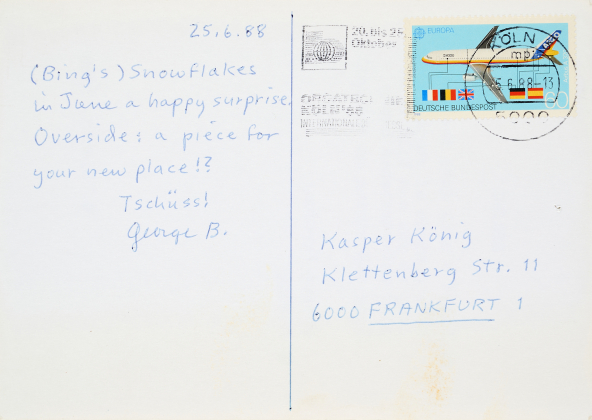 25.6.88
(Bing's) Snowflakes
in June a happy surprise.
Overside: a piece for
your new place!?
Tschüss!
George B.
20. bis 26.
Oktober
EUROPA
DEUTSCHE BUNDESPOST
60
KÖLN
mp
6.88-13
5000
Kasper König
Klettenberg Str. 11
6000 FRANKFURT 1